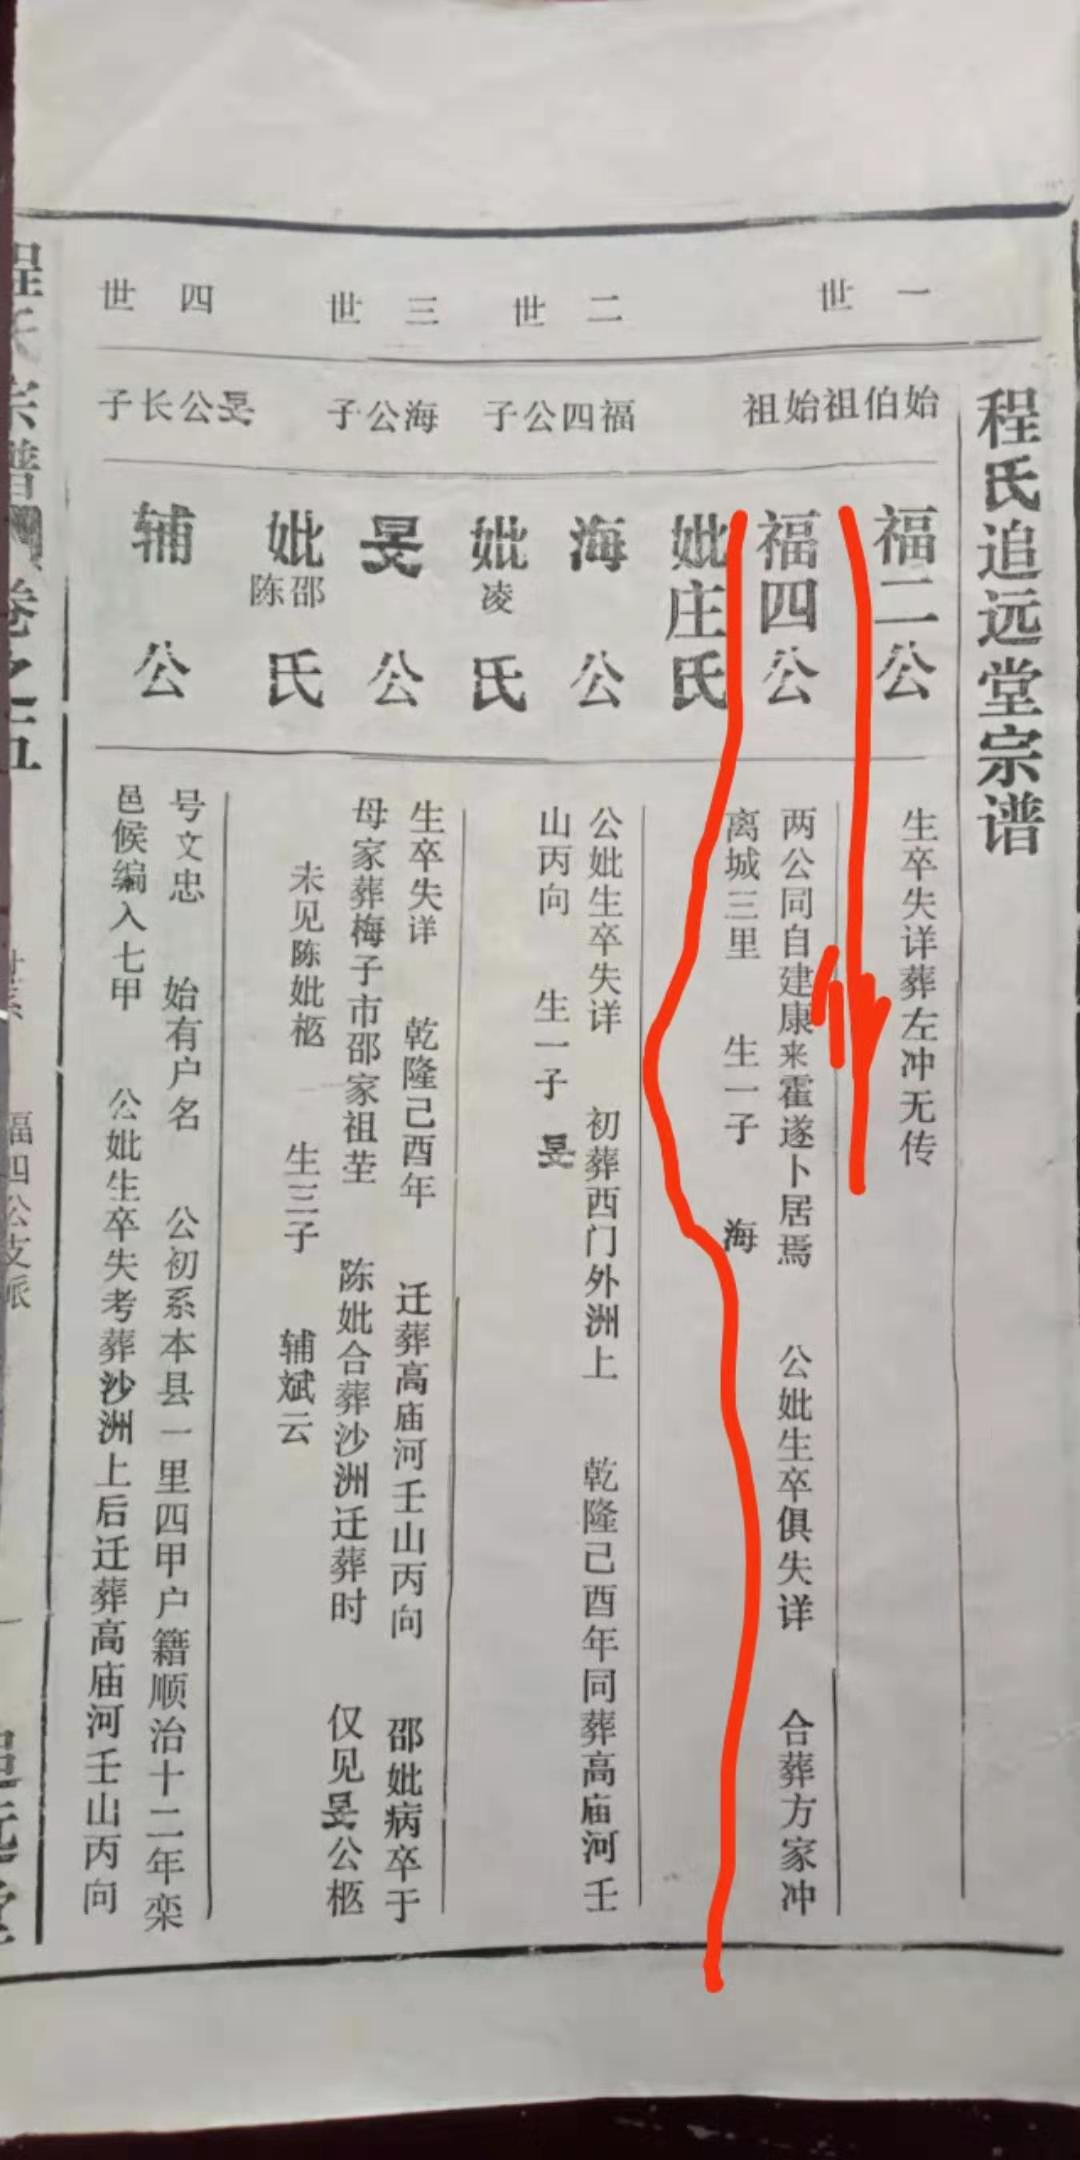 程氏追远堂宗谱
一世
始伯祖
福二公
生卒失详葬左冲无传
始祖
福四公
两公同自建康来霍遂卜居焉 公妣生卒俱失详 合葬方家冲
离城三里 生一子 海
妣庄氏
二世
福四公子
海公
公妣生卒失详 初葬西门外洲上 乾隆己酉年同葬高庙河壬
山丙向 生一子 旻
妣凌氏
三世
海公子
旻公
生卒失详 乾隆己酉年 迁葬高庙河壬山丙向 邵妣病卒于
母家葬梅子市邵家祖茔 陈妣合葬沙洲迁葬时 仅见旻公柩
未见陈妣柩 生三子 辅斌云
妣邵陈氏
四世
旻公长子
辅公
号文忠 始有户名 公初系本县一里四甲户籍顺治十二年栾
邑候编入七甲 公妣生卒失考葬沙洲上后迁葬高庙河壬山丙向
程氏宗谱 卷之五
福四公支派